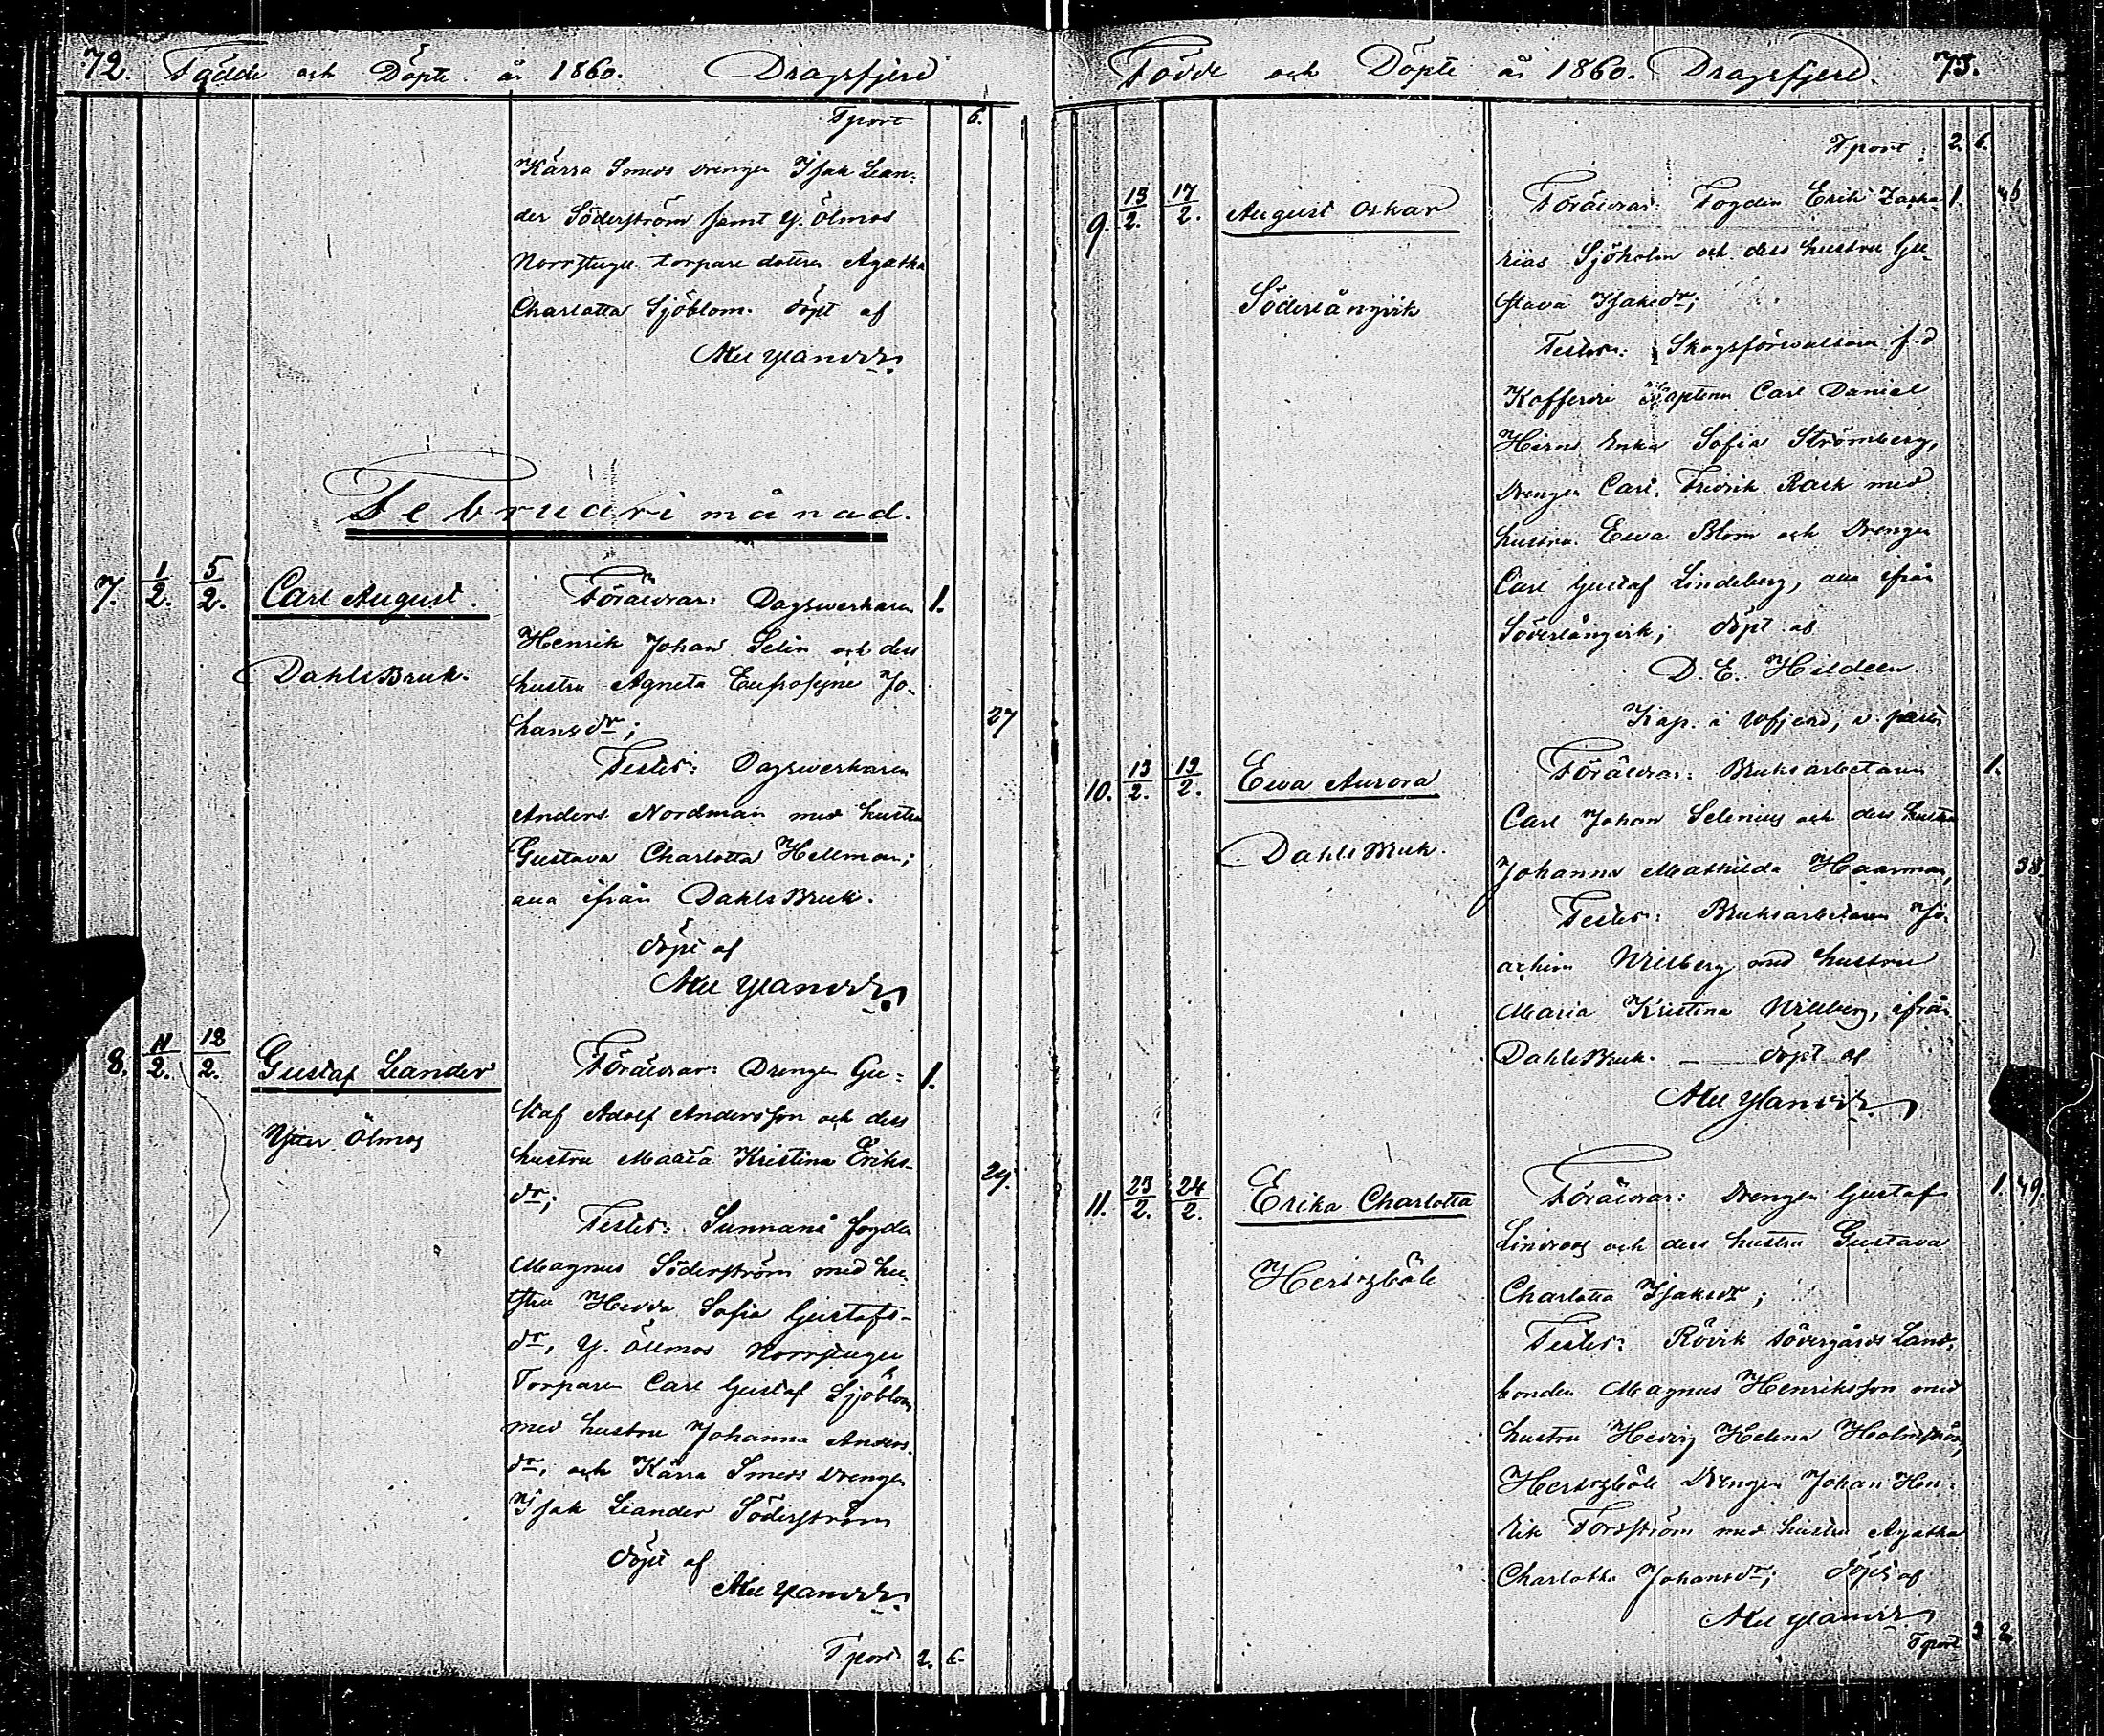 72. Födde och Döpte år 1860. Dragsfjerd
Tport 6.
Kärra Smeds drengen Isak Lean-
der Söderström samt Y. Ölmos
Norrstugu torpare dotern Agatha
Charlotta Sjöblom. döpt af
Februari månad.
7. 1/2. 5/2. Carl August. Föräldrar: Dagsverkaren 1.
Henrik Johan Selin och dess
DahlsBruk. hustru Agneta Eufrosyne Jo-
hansdr; 27
Testes: Dagsverkaren
Anders Nordman med hustru
Gustava Charlotta Hellman;
alla ifrån DahlsBruk.
döpt af
8. 11/2. 12/2. Gustaf Leander Föräldrar: Drengen Gu- 1.
staf Adolf Andersson och dess
Ytter Ölmos hustru Maria Kristina Eriks-
dr; 29.
Testes: Sunnanå fogden
Magnus Söderström med hu-
stru Hedda Sofia Gustafs-
dr, Y. Ölmos Norrstugu
Torparen Carl Gustaf Sjöblom
med hustru Johanna Anders-
dr, och Kärra Smeds drengen
Isak Leander Söderström
döpt af
Tport 2. 6.
Födde och Döpte år 1860. Dragsfjerd. 73.
Tport: 2. 6.
9. 13/2. 17/2. August Oskar Föräldrar: Fogden Erik Zacha- 1.
rias Sjöholm och dess hustru Gu-
Söderlångvik stava Isaksdr;
Testes: Skogsförvaltaren f.d
Kofferdi Kaptenen Carl Daniel
Hirns Enka Sofia Strömberg,
Drengen Carl Fredrik Rask med
hustru Ewa Blom och Drengen
Carl Gustaf Lindeberg, alla ifrån
Söderlångvik; döpt af
D. E. Hildeen
Kap. i Wfjerd,
10. 13/2. 19/2. Ewa Aurora Föräldrar: Bruksarbetaren 1.
Carl Johan Selenius och dess hustru
DahlsBruk. Johanna Mathilda Haarman, 38.
Testes: Bruksarbetaren Jo-
achim Willberg med hustru
Maria Kristina Willberg, ifrån
DahlsBruk. — döpt af
11. 23/2. 24/2. Erika Charlotta Föräldrar: Drengen Gustaf 1. 49.
Lindroos och dess hustru Gustava
Hertsböle Charlotta Isaksdr;
Testes: Rövik Södergårds Land-
bonden Magnus Henriksson med
hustru Hedvig Helena Holmström,
Hertsböle Drengen Johan Hen-
rik Forsström med hustru Agatha
Charlotta Johansdr; döpt af
Tport 3